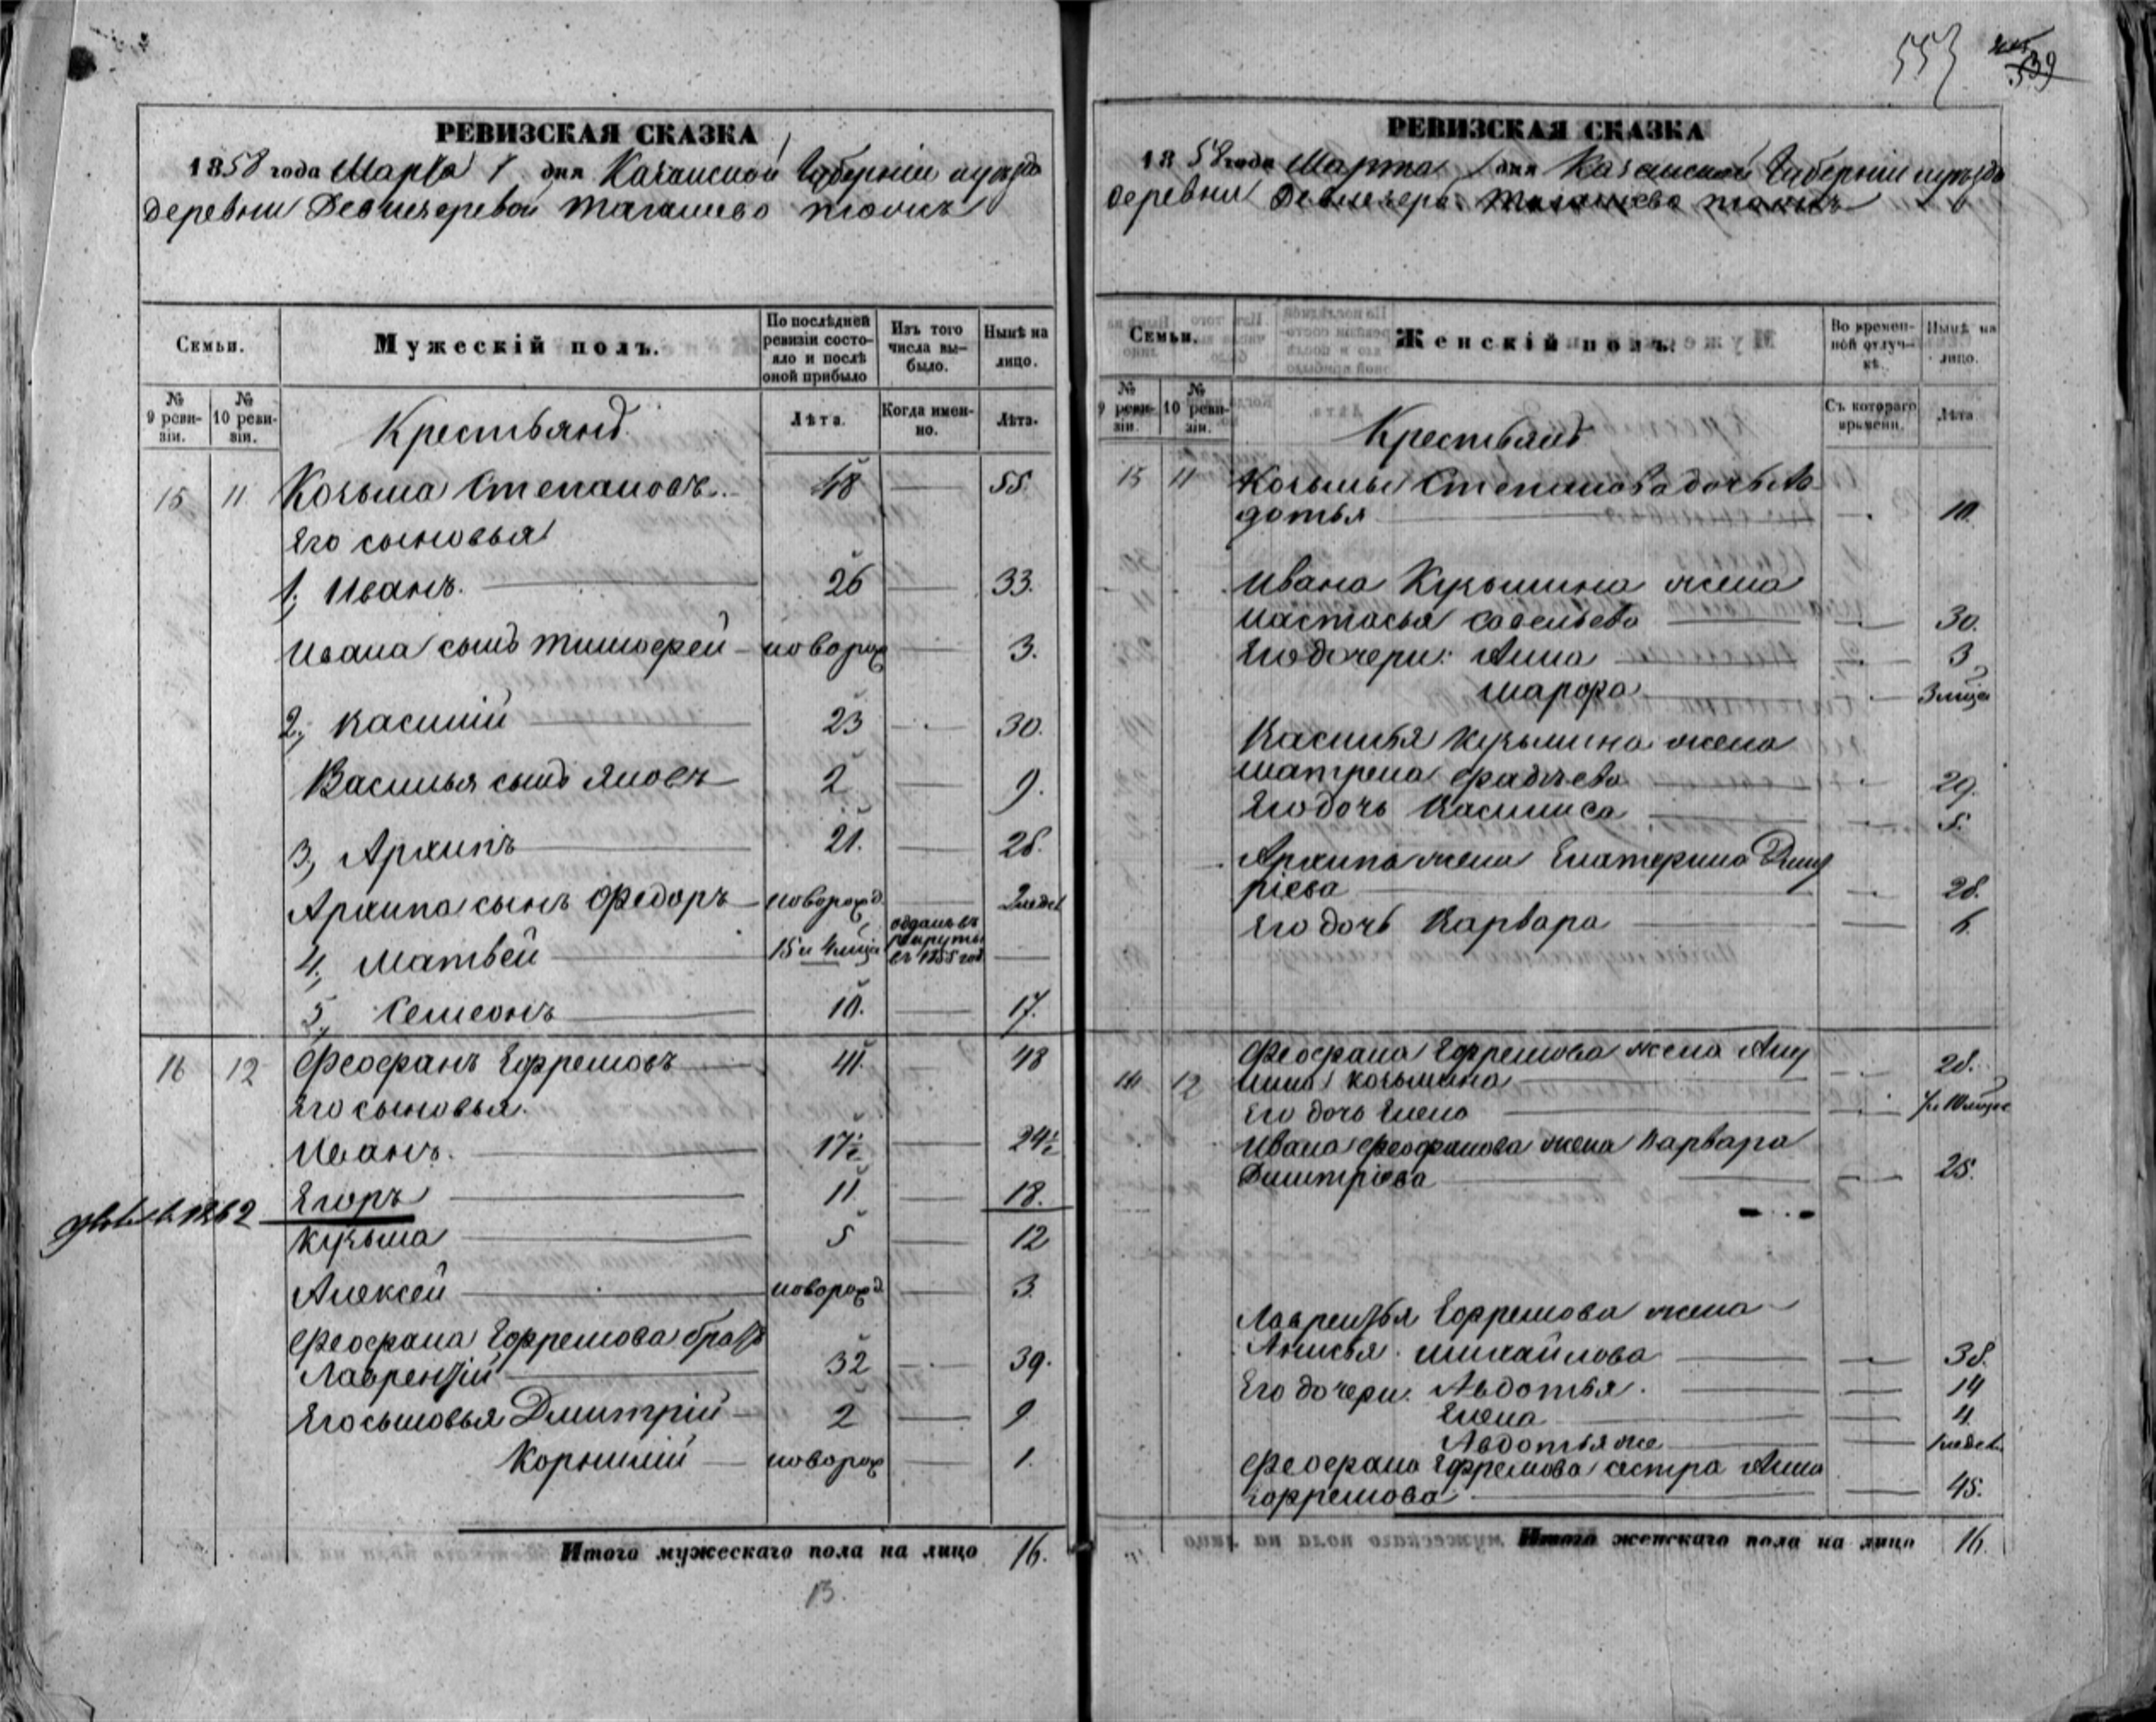 553
539
РЕВИЗСКАЯ СКАЗКА
1858 года Марта 1 дня Казанской Губерніи и уезда
деревни Девликеревой тагашево тожъ
Семьи.
Мужескій полъ.
По последней ревизіи состояло и после оной прибыло
Изъ того числа выбыло.
Ныне на лицо.
№ 9 ревизіи.
№ 10 ревизіи.
Крестьянъ
Лета.
Когда именно.
Лета.
15 11 Козьма Степановъ 48 — 55.
Его сыновья
1, Иванъ. 26 — 33.
Ивана сынъ Тимофей — новорож — 3.
2, Василій 23 — 30.
Василья сынъ Яковъ 2 — 9.
3, Архипъ 21. — 28.
Архипа сынъ Федоръ новорожд — 2 недел
4, Матвей 15 и 4 мца отданъ въ рекруты въ 1855 год —
5, Семеонъ 10. — 17.
16 12 Феофанъ Ефремовъ 41. — 48
Его сыновья.
Иванъ. 17½ — 24½
Егоръ 11 — 18.
1862
Кузьма 5 — 12
Алексей новорожд — 3.
Феофана Ефремова братъ
Лаврентій 32 — 39.
Его сыновья Дмитрій 2 — 9
Корнилій — новорож — 1.
Итого мужескаго пола на лицо 16.
13.
РЕВИЗСКАЯ СКАЗКА
1858 года Марта 1 дня Казанской Губерніи и уезда
деревни Девликерев. тагашево тожъ
Семьи.
Женскій полъ.
Во временной отлучке.
Ныне на лицо.
№ 9 ревизіи.
№ 10 ревизіи.
Крестьянъ
Съ котораго времени.
Лета
15 11 Козьмы Степанова дочь Ав
дотья — 10.
Ивана Кузьмина жена
Настасья Савельева — 30.
Его дочери: Анна — 3
Марфа — 3 мца
Василья Кузьмина жена
Матрена Фадеева — 29.
Его дочь Василиса — 5.
Архипа жена Екатерина Дмит
ріева — 28.
Его дочь Варвара — 6
16 12 Феофана Ефремова жена Аку
лина Козьмина — 28.
Его дочь Елена — 10 мцов
Ивана Феофанова жена Варвара
Дмитріева — 25.
Лаврентья Ефремова жена
Анисья Михайлова — 38.
Его дочери: Авдотья. — 14
Елена — 4.
Авдотья же — 1 недел.
Феофана Ефремова сестра Анна
Ефремова — 45.
Итого женскаго пола на лицо 16.